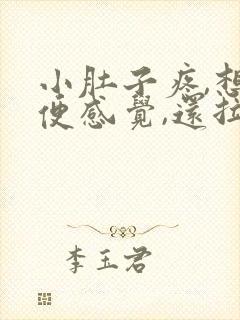 小肚子疼,想
便感覺,還拉
李玉君